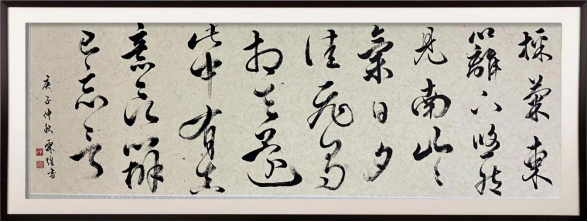 採菊東
籬下悠然
見南山々
氣日夕
佳飛鳥
相與還
此中有真
意欲辨
已忘言
庚子仲秋 書